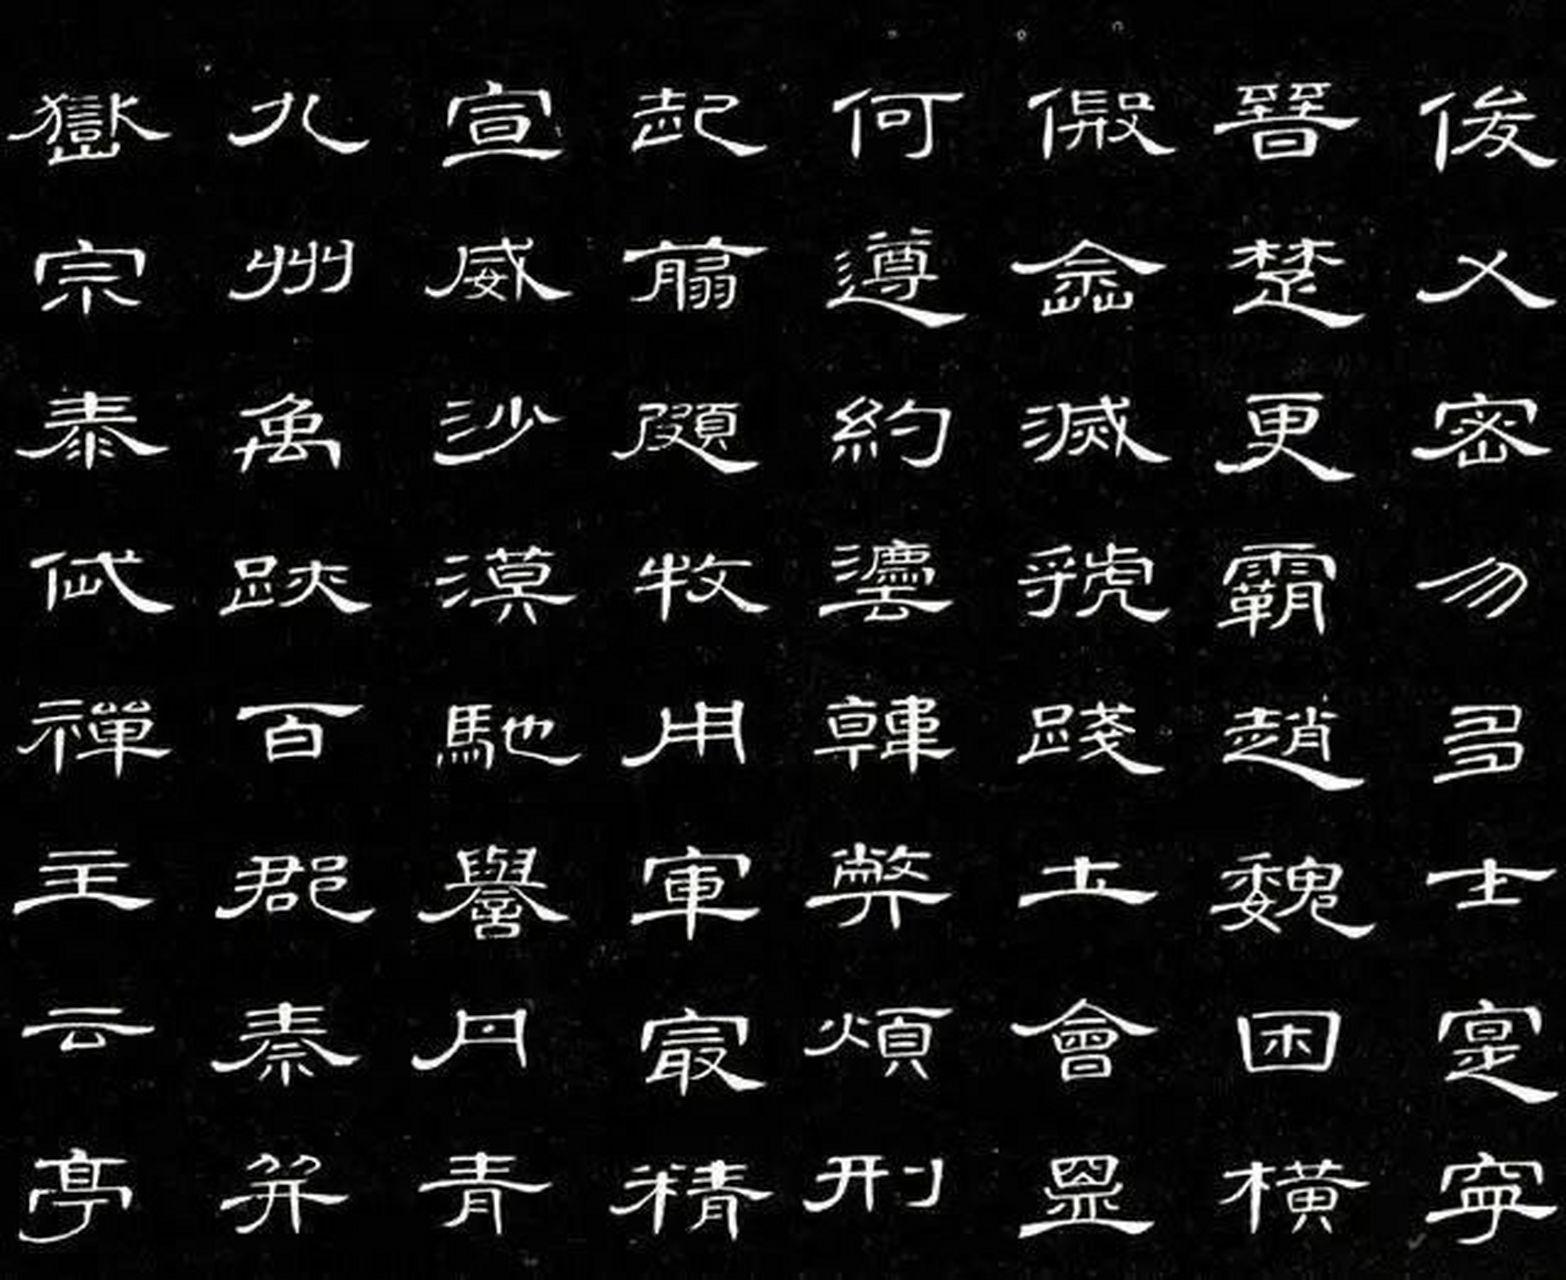 俊乂密勿多士寔寧
晉楚更霸趙魏困橫
假途滅虢踐土會盟
何遵約法韓弊煩刑
起翦頗牧用軍最精
宣威沙漠馳譽丹青
九州禹跡百郡秦并
嶽宗泰岱禪主云亭